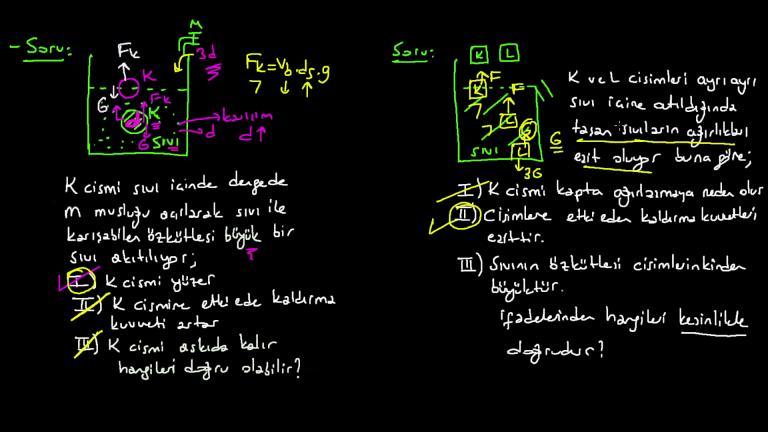 - Soru:
M
3d
Fk
K
G
Fk
K
G
SIVI
karışım
d
d↑
Fk = Vb.ds.g
7 ↓ ↑
K cismi sıvı içinde dengede
M musluğu açılarak sıvı ile
karışabilen özkütlesi büyük bir
sıvı akıtılıyor;
I) K cismi yüzer
II) K cismine etki ede kaldırma
kuvveti artar
III) K cismi askıda kalır
hangileri doğru olabilir?
Soru:
K L
F
K
7
F
7
K
G
L
G
SIVI
3G
K ve L cisimleri ayrı ayrı
sıvı içine atıldığında
taşan sıvıların ağırlıkları
eşit oluyor buna göre;
I) K cismi kapta ağırlaşmaya neden olur
II) Cisimlere etki eden kaldırma kuvvetleri
eşittir.
III) Sıvının özkütlesi cisimlerinkinden
büyüktür.
ifadelerinden hangileri kesinlikle
doğrudur?